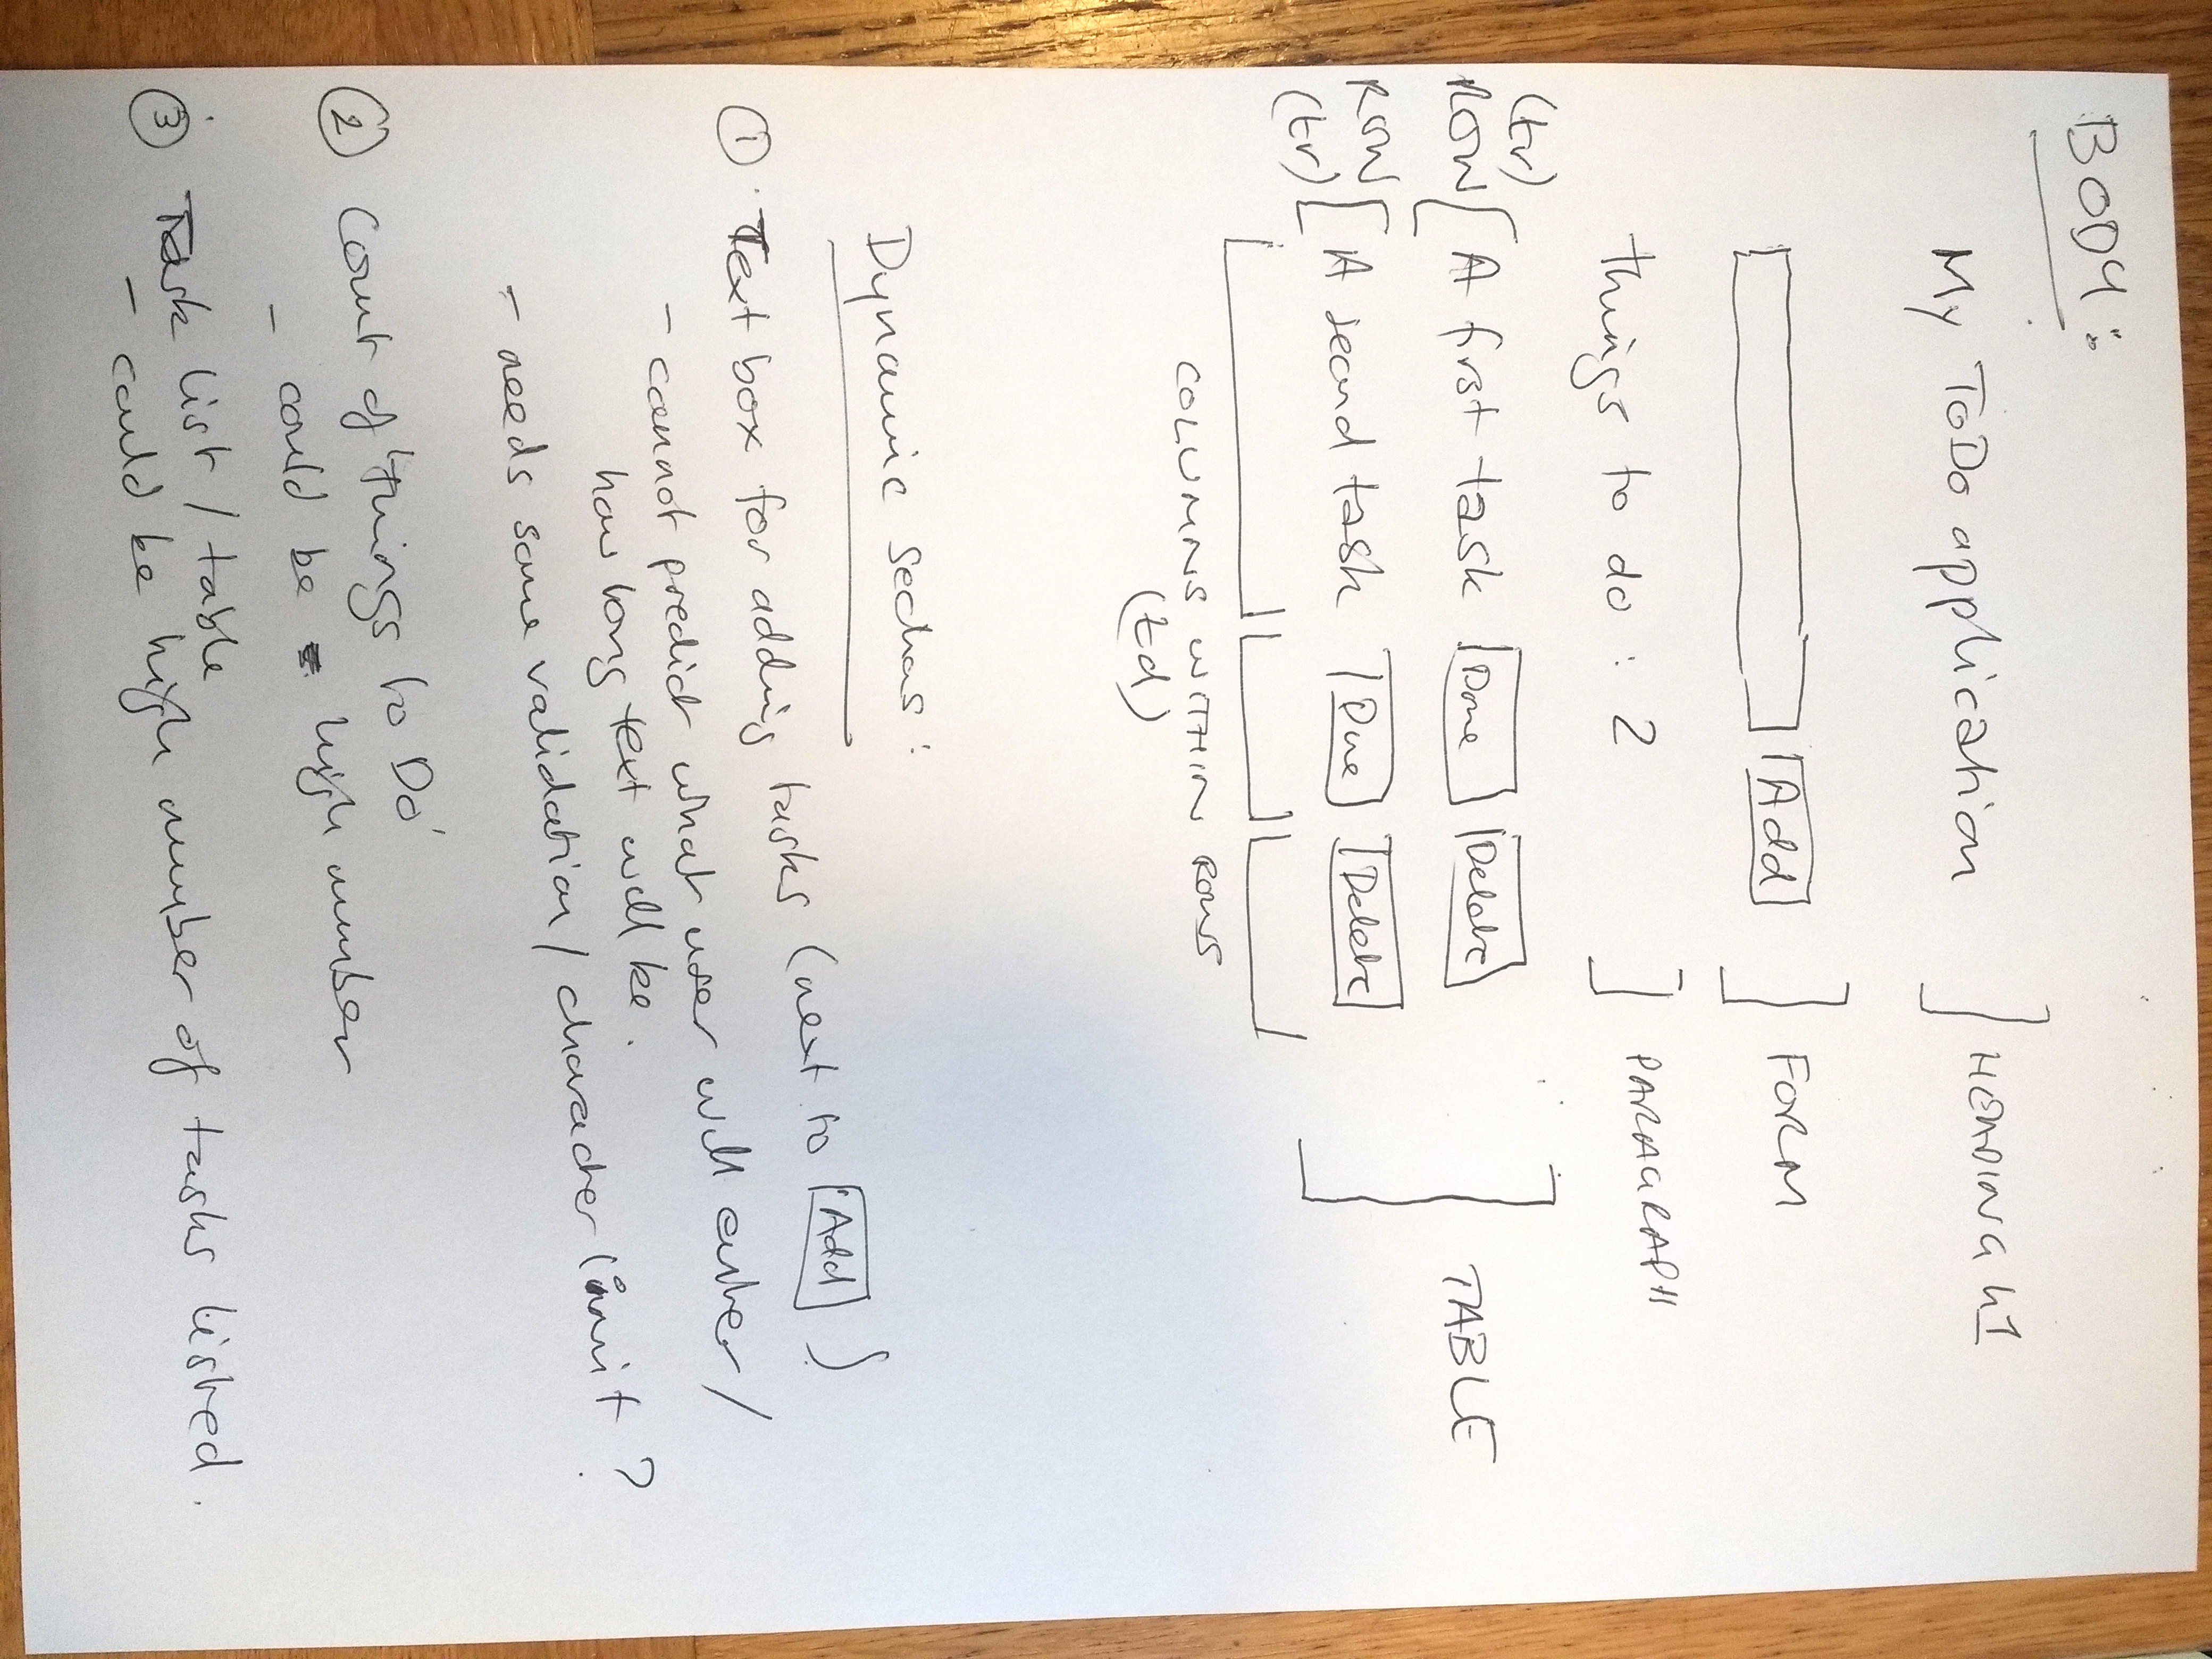 BODY:
My ToDo application ] HEADING h1
Add ] FORM
things to do : 2 ] PARAGRAPH
(tr)
ROW [ A first task Done Delete
] TABLE
ROW [ A second task Done Delete
(tr)
COLUMNS WITHIN ROWS
(td)
Dynamic sections :
① Text box for adding tasks (next to Add )
- cannot predict what user will enter /
how long text will be .
- needs some validation / character limit ?
② Count of 'things to Do'
- could be high number
③ Task list / table
- could be high number of tasks listed .